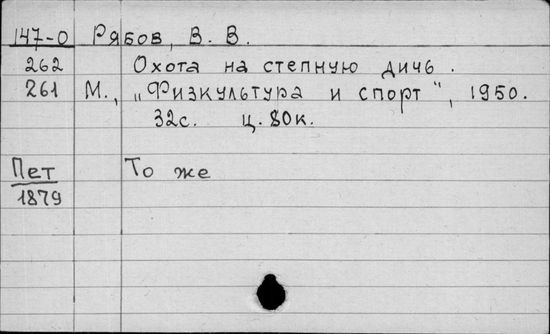 147-0 Рябов, В. В.
262 Охота на степную дичь.
261 М., „Физкультура и спорт", 1950.
32с. ц. 80к.
Пет То же
1879